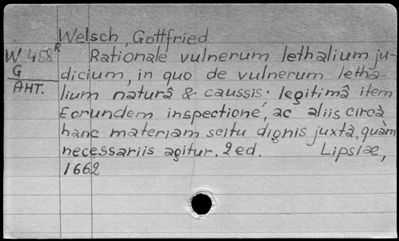 Welsch, Gottfried
W 458R Rationale vulnerum lethalium ju-
G dicium, in quo de vulnerum letha-
AHT. lium naturâ & caussis: legitimâ item
Eorundem inspectione, ac aliis circà
hanc materiam scitu dignis juxtà, quàm
necessariis agitur. 2ed. Lipsiae,
1662